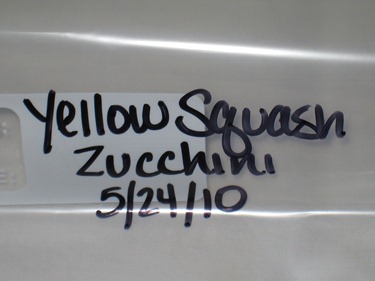 Yellow Squash
Zucchini
5/24/10